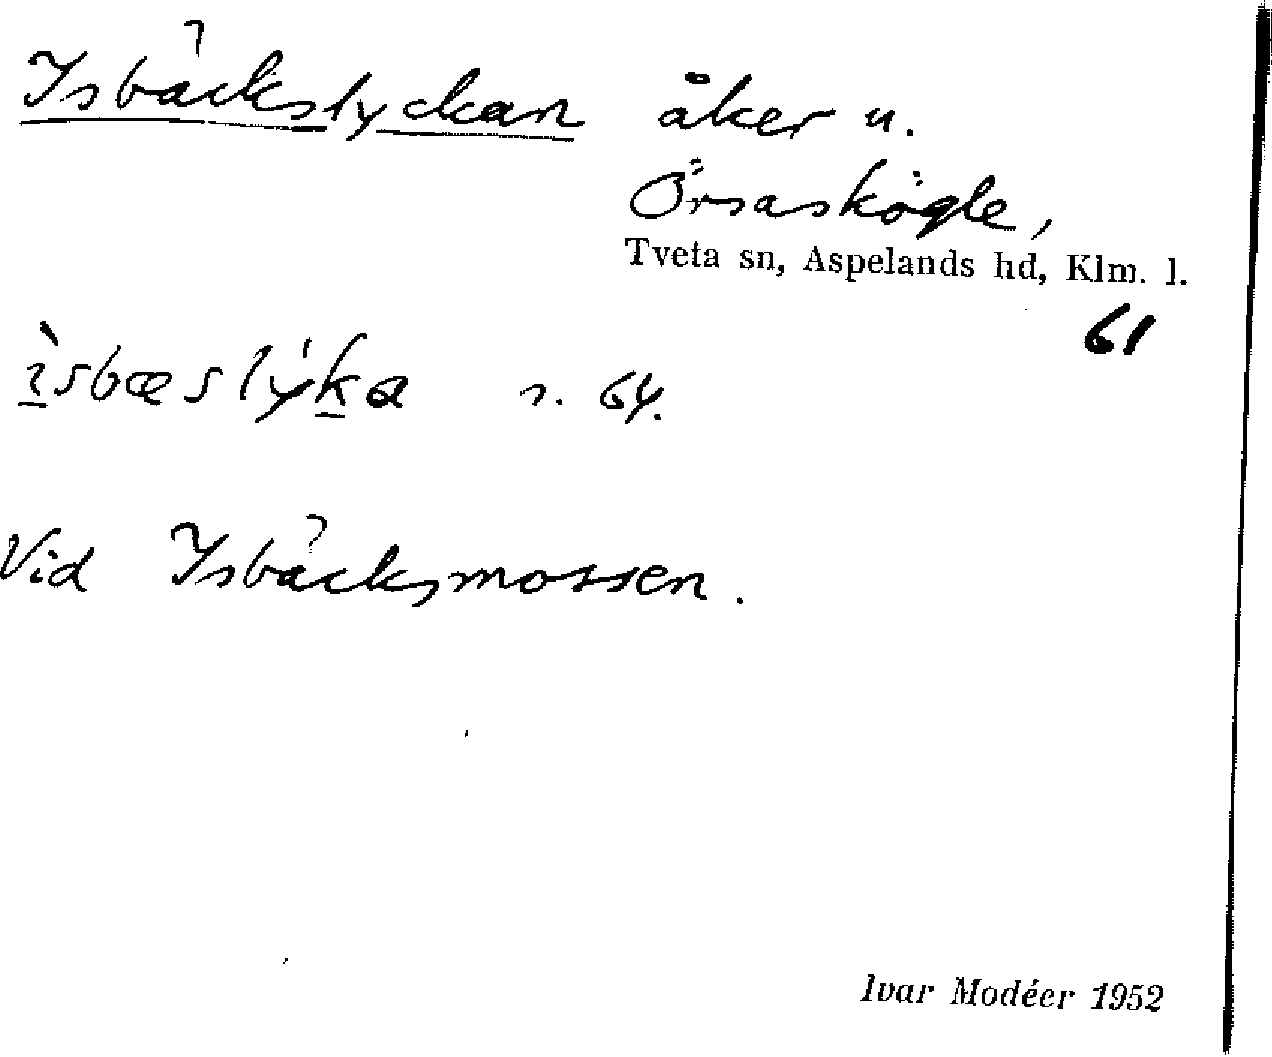 Isbäckslyckan åker u.
Örsaskögle,
Tveta sn, Aspelands hd, Klm. l.
61
ìsbæslýka s. 64.
Vid Isbäcksmossen.
Ivar Modéer 1952